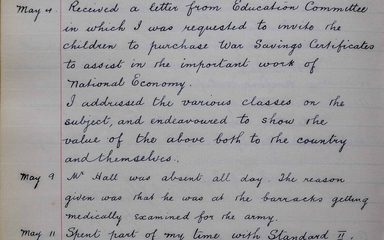 May 4 Received a letter from Education Committee
in which I was requested to invite the
children to purchase War Savings Certificates
to assist in the important work of
National Economy.
I addressed the various classes on the
subject, and endeavoured to show the
value of the above both to the country
and themselves.
May 9 Mr Hall was absent all day. The reason
given was that he was at the barracks getting
medically examined for the army.
May 11 Spent part of my time with Standard II,